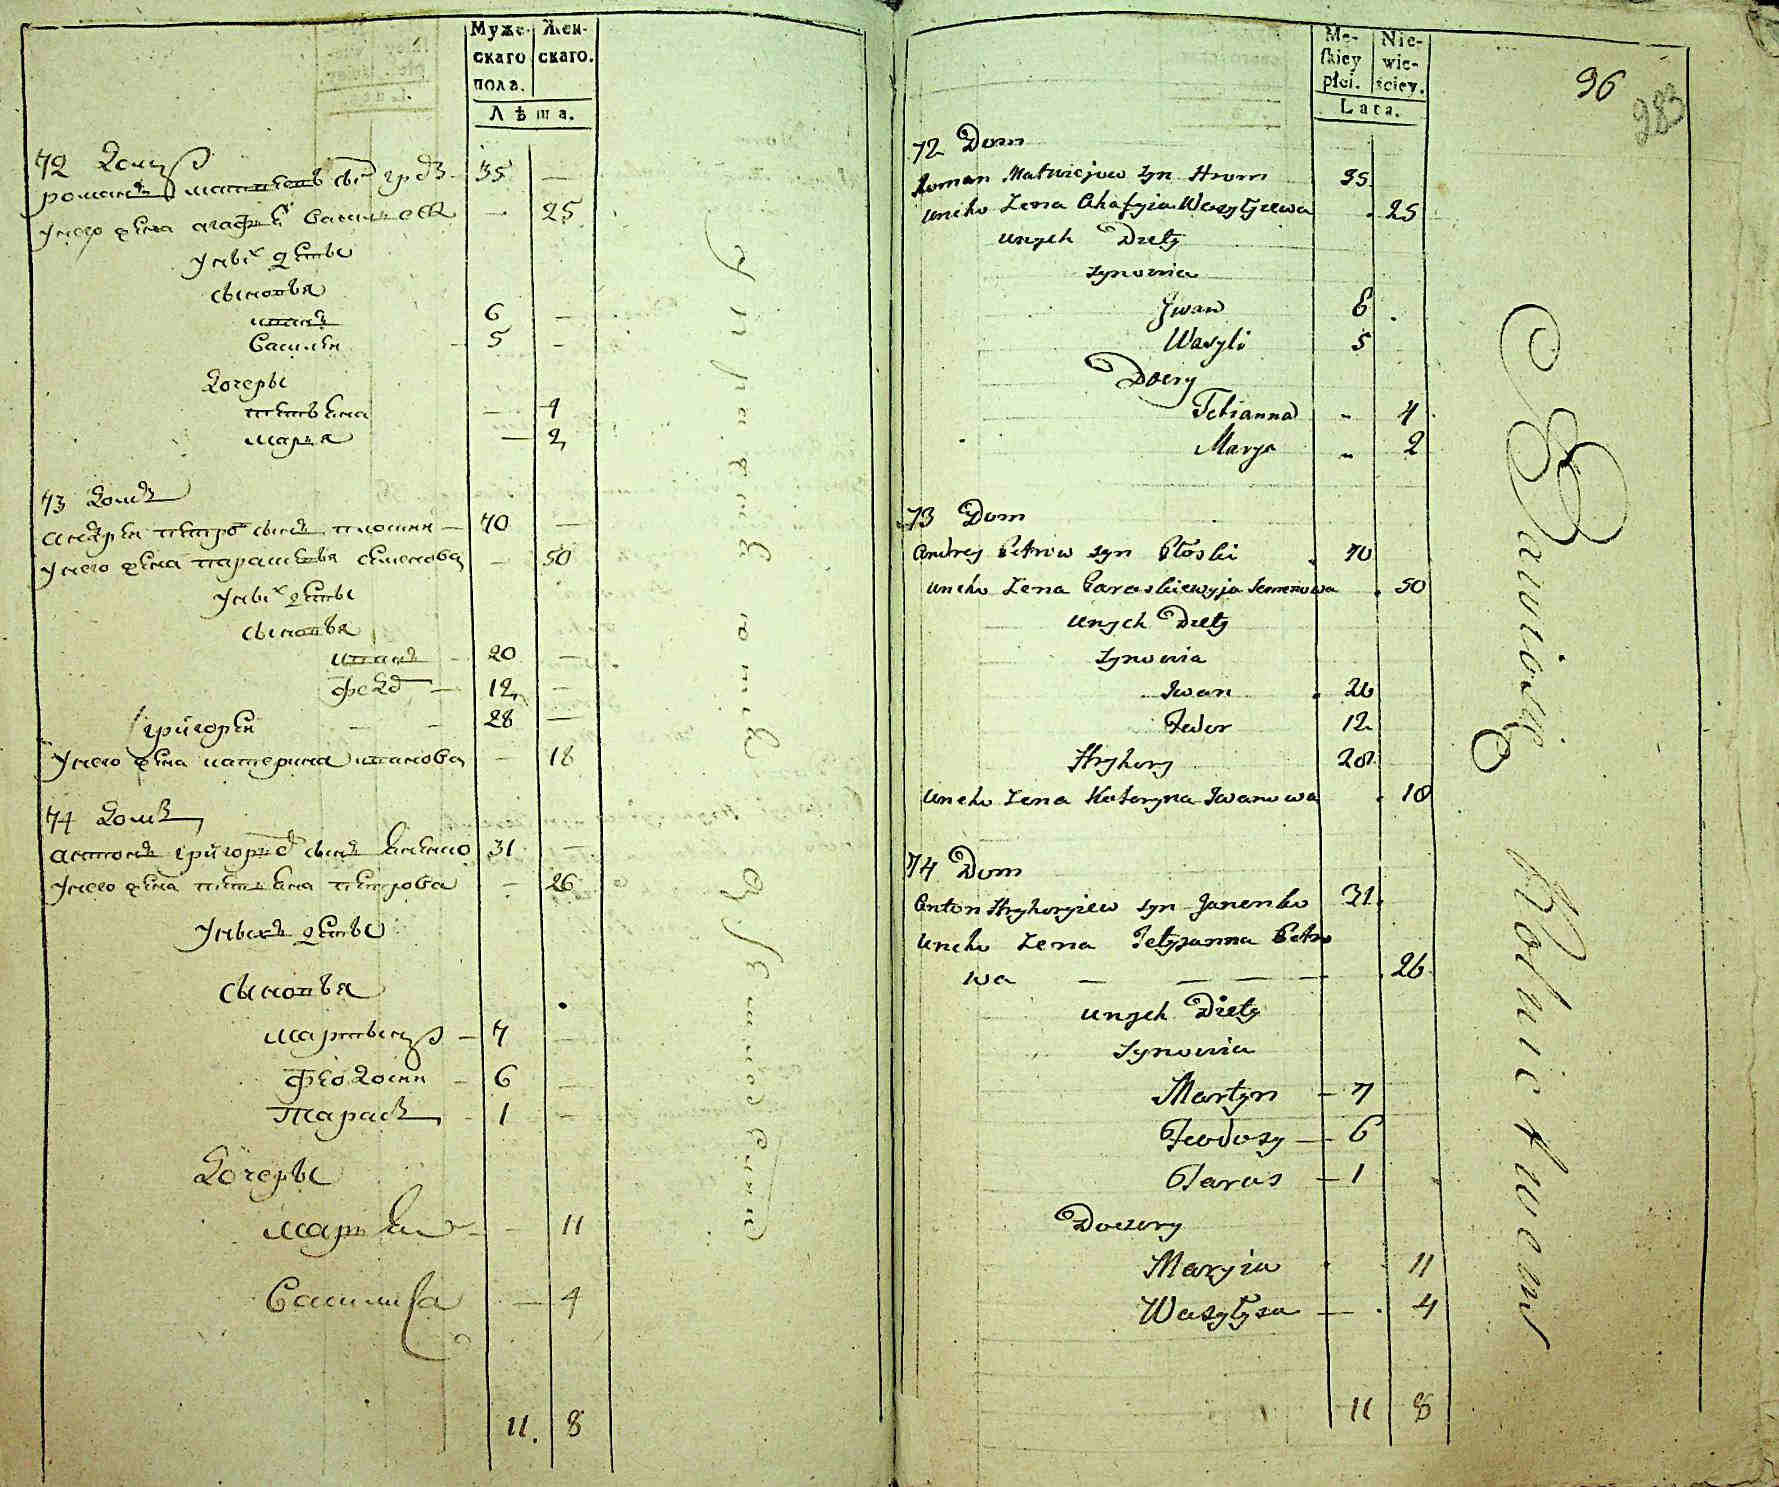 Муже- Жен-
скаго скаго.
пола.
Лѣта.
72 домъ
романъ матвѣевъ сынъ громъ 35 —
унего жена агафія василева — 25
унихъ дѣти
сыновья
иванъ 6 —
василеи 5 —
дочеры
тетьяна — 4
марья — 2
73 домъ
андреи петровъ сынъ плоскии — 70 —
унего жена парасковья семенова — 50
унихъ дѣти
сыновья
иванъ — 20 —
федоръ — 12 —
григореи — — 28 —
унего жена катерина иванова — 18
74 домъ
антонъ григоревъ сынъ яненко 31 —
унего жена тетьяна петрова — 26
унихъ дѣти
сыновья
мартынъ — 7 —
феодосии — 6 —
тарасъ — 1 —
дочеры
марья — — 11
василиса — 4
11. 8
Упражняются въ хлѣбопашествѣ
Mę- Nie-
skiey wie-
płci. sciey.
Lata.
96
283
72 Dom
Roman Matwiejew syn Hrom 35
uneho Zena Ahafyia Wasylijewa 25
unych Diety
synowia
Jwan 6
Wasyli 5
Docry
Tetianna - 4
Marya - 2
73 Dom
Andrej Petrow syn Płoski 70
uneho Zena Paraskiewyja Semenowa 50
unych Diety
synowia
Jwan 20
Fedor 12
Hryhory 28
uneho Zena Kateryna Jwanowa 18
74 Dom
Anton Hryhoryiew syn Janenko 31
uneho Zena Tetyanna Petro
wa — — — — 26
unych Diety
Synowia
Martyn — 7
Feodosy — 6
Taras — 1
Doczery
Maryia 11
Wasyłysa — 4
11 8
Bawią się Rolnictwem